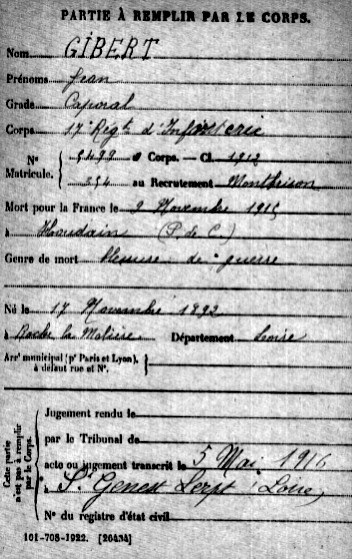 PARTIE À REMPLIR PAR LE CORPS.
Nom GIBERT
Prénoms Jean
Grade Caporal
Corps 17e Régt d'Infanterie
No Matricule. 5499 au Corps. — Cl. 1912
254 au Recrutement Montbrison
Mort pour la France le 2 Novembre 1915
à Houdain (P. de C.)
Genre de mort blessure de guerre
Né le 17 Novembre 1892
à Roche la Molière Département Loire
Arrt municipal (pr Paris et Lyon), à défaut rue et No.
Cette partie n'est pas à remplir par le Corps.
Jugement rendu le
par le Tribunal de
acte ou jugement transcrit le 5 Mai 1916
à St Genest Lerpt (Loire)
No du registre d'état civil
101-708-1922. [26434]